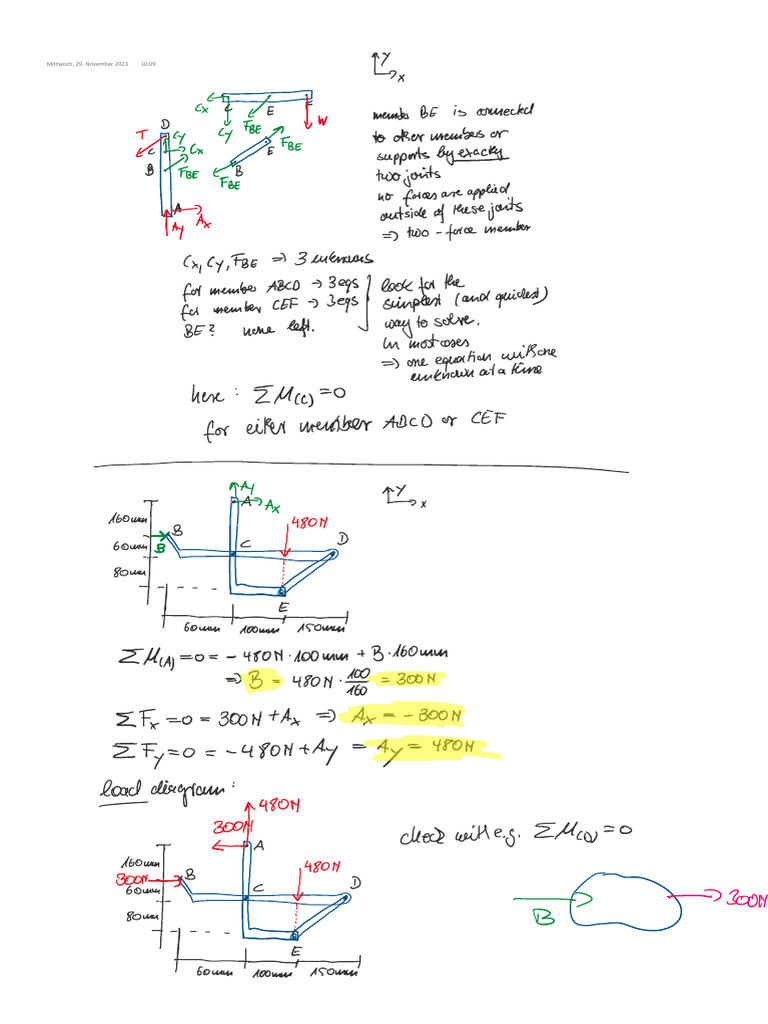 Mittwoch, 29. November 2023 10:09
Y
x
Cx
C
E
Cy
FBE
W
D
T
Cy
C
Cx
B
FBE
E
FBE
B
FBE
A
Ax
Ay
member BE is connected
to other members or
supports by exacly
two joints
no forces are applied
outside of these joints
=> two-force member
Cx, Cy, FBE => 3 unknowns
for member ABCD -> 3 eqs
for member CEF -> 3 eqs
BE? none left.
look for the
simplest (and quickest)
way to solve.
In most cases
=> one equation with one
unknown at a time
here: ΣM(C) = 0
for either member ABCD or CEF
Ay
A
Ax
Y
x
160mm
B
480N
60mm
B
C
D
80mm
E
60mm
100mm
150mm
ΣM(A) = 0 = - 480N · 100mm + B · 160mm
=> B = 480N · 100/160 = 300N
ΣFx = 0 = 300N + Ax => Ax = - 300N
ΣFy = 0 = - 480N + Ay = Ay = 480N
load diagram:
480N
300N
A
check with e.g. ΣM(D) = 0
160mm
B
480N
300N
60mm
C
D
80mm
E
60mm
100mm
150mm
B
300N